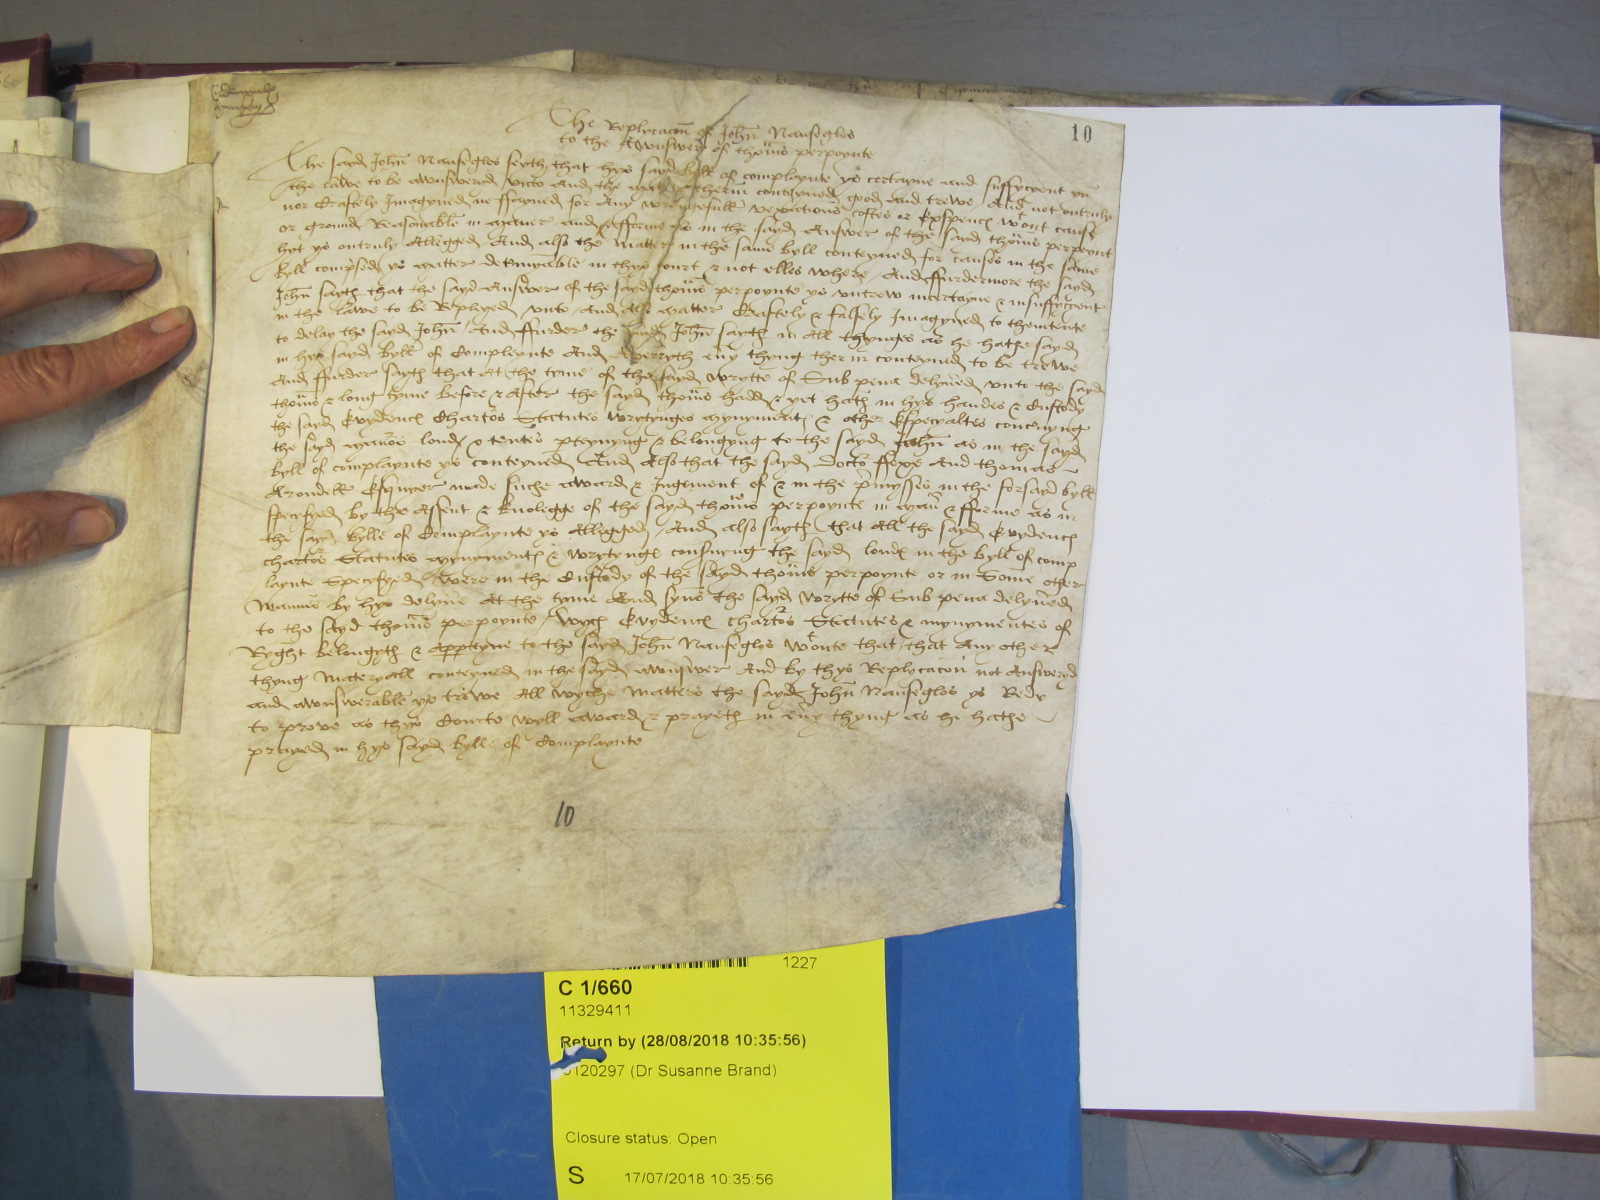 10
The Replycacon of John Nanseglos
to the Awnswer of thoms perpoynte
The sayd John Nanseglos seyth that hys sayd byll of complaynte ys certayne and suffycyent yn
the lawe to be awnsweryd vnto And the matter therin conteyned good and trewe And not ontruly
nor Craftely Imagyned ne ffayned for Any wrongefull vexacions costes or Expences wtout cause
or ground Reasonable in maner and fforme As in the sayd Answer of the sayd thoms perpoynt
hyt ys ontruly Allegged And also the matter in the same byll conteyned for causes in the same
byll comprised ys matter determynable in thys court & not elles where And ffurdermore the sayd
John sayth that the sayd Answer of the sayd thoms perpoynte ys vntrew incertayne & insuffycyent
in the lawe to be Replyed vnto And also matter Craftely & falsly Imagyned to thentente
to delay the sayd John And ffurder the sayd John sayth in All thynges as he hathe sayd
in hys sayd byll of Compleynte And Averryth eny thyng therin conteyned to be trewe
And ffurder sayth that At the tyme of the sayd wrytte of Sub pena delyved vnto the sayd
thoms & long tyme before & After the sayd thoms hadd & yet hath in hys handes & Custody
the sayd Evydences Chartors Statutes wrytynges mynymentes & other Especyaltes concernyng
the sayd maners londes & tentes pteynyng & belongyng to the sayd John as in the sayd
byll of complaynte ys conteyned And Also that the sayd Doctor ffoxe And thomas
Arondell Esquyer made suche award & Jugement of & in the pmysses in the forsayd byll
specyfyed by the Assent & knolegge of the sayd thoms perpoynte in maner & fforme as in
the sayd bylle of Complaynte ys Allegged And also sayth that All the sayd Evydences
chartors Statutes mynymentes & wrytynges consnyng the sayd londes in the byll of comp
laynte Specyfyed were in the Custody of the sayd thoms perpoynte or in Some other
mannes by hys delyve At the tyme And syns the sayd wrytte of Sub pena delyved
to the sayd thoms perpoynte / wych Evydences chartors Statutes & mynymentes of
Ryght belongyth & Apptayne to the sayd John Nanseglos wtoute that that Any other
thyng materyall conteyned in the sayd awnswer And by thys Replycacon not Answeryd
and awnswerable ys trewe All wyche matters the sayd John Nanseglos ys Redy
to prove as thys Courte wyll award & prayeth in evy thyng as he hathe
prayed in hys sayd bylle of Complaynte
10
1227
C 1/660
11329411
Return by (28/08/2018 10:35:56)
120297 (Dr Susanne Brand)
Closure status: Open
S 17/07/2018 10:35:56